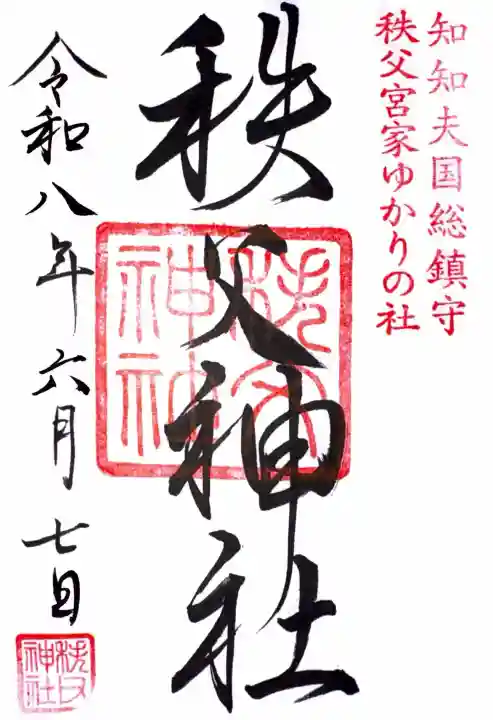 知知夫国総鎮守
秩父宮家ゆかりの社
秩父神社
秩父神社
令和八年六月七日
秩父神社